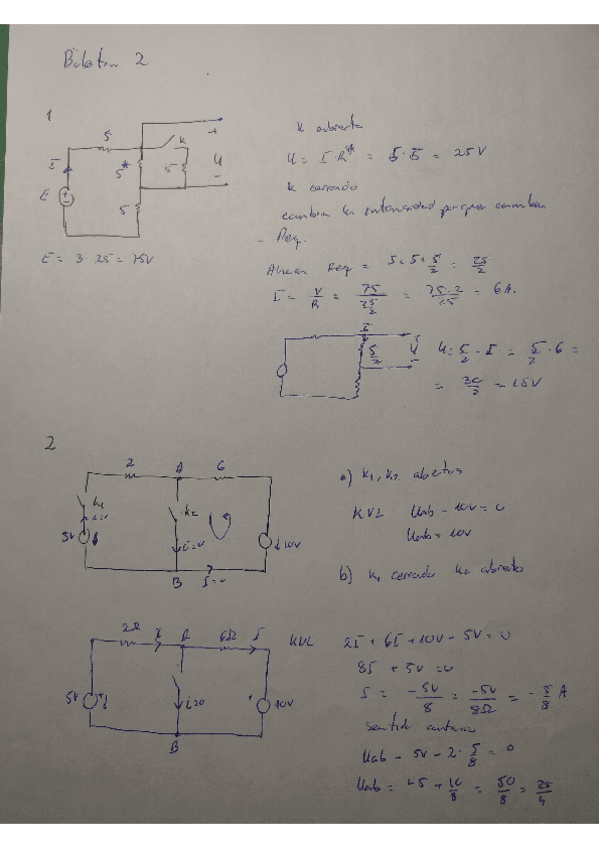 Boletín 2
1
5
K
+
I
5*
5
U
-
E
5
E = 3·25 = 75V
K abierto
U = I·R* = 5·5 = 25V
K cerrado
cambia la intensidad porque cambia
Req.
Ahora Req = 5+5+5/2 = 25/2
I = V/R = 75/(25/2) = 75·2/25 = 6A.
I
5/2
U
U = 5/2 · I = 5/2 · 6 =
= 30/2 = 15V
2
2
A
6
K1
I=0
K2
5V
I=0
10V
B
I=0
a) K1, K2 abiertos
KVL Uab - 10V = 0
Uab = 10V
b) K1 cerrado K2 abierto
2Ω
I
A
6Ω
I
5V
I=0
+
10V
B
KVL 2I + 6I + 10V - 5V = 0
8I + 5V = 0
I = -5V/8 = -5V/8Ω = -5/8 A
sentido contrario
Uab - 5V - 2·5/8 = 0
Uab = +5 + 10/8 = 50/8 = 25/4